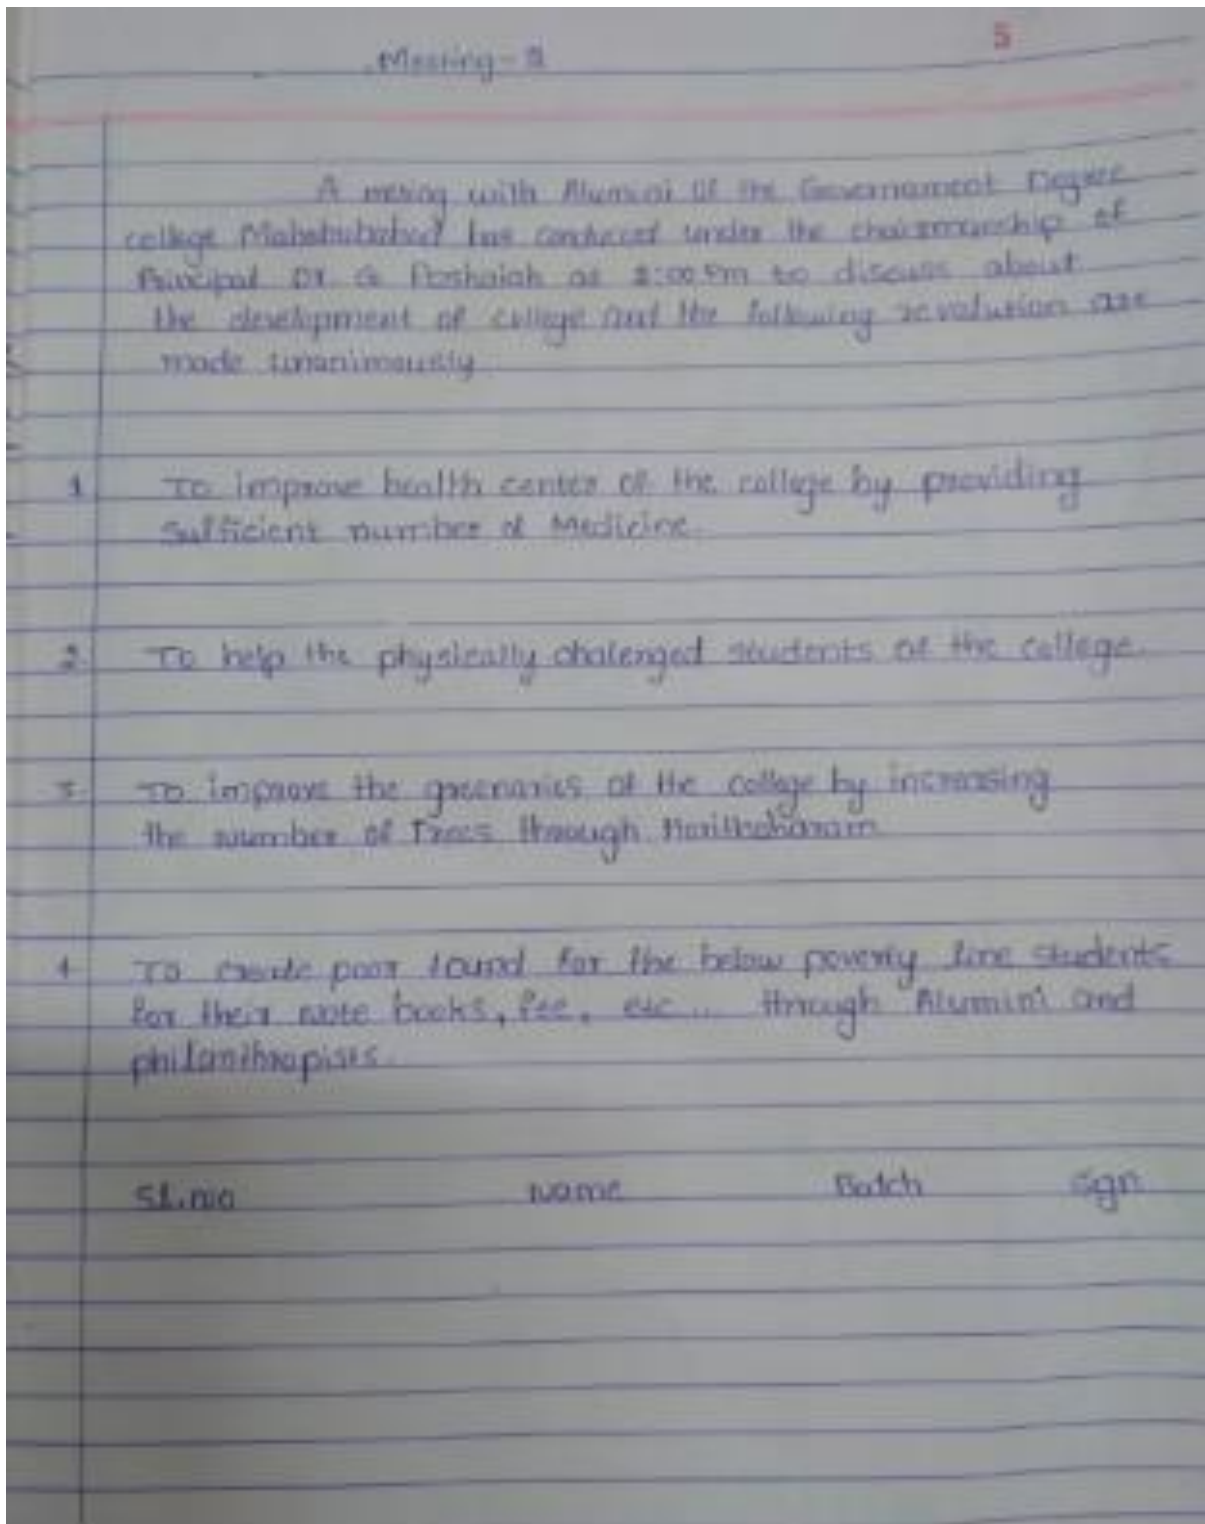 Meeting - 2
5
A meeing with Alumini of the Governament Degree
college Mahabubabad has conduced under the chairmanship of
Principal Dr. G Poshaiah at 2:00 Pm to discuss about
the development of college and the following revolution are
made unanimously
1 To improve health center of the college by providing
Sufficient number of Medicine.
2. To help the physically chalenged students of the college.
3. To improve the greenaries of the college by increasing
the number of Trees through
4 To create poor found for the below poverty line students
for their note books, fee, etc... through Alumini and
philanthropists.
SL.no Name Batch Sgn